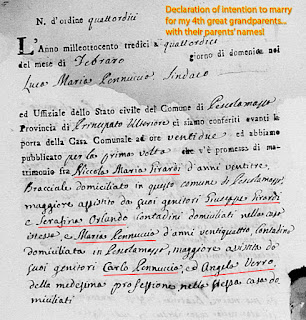 N. d'ordine quattordici
Declaration of intention to marry
for my 4th great grandparents...
with their parents' names!
L'Anno milleottocento tredici a quattordici
del mese di Febraro giorno di domenica noi
Luca Maria Pennuccio Sindaco
ed Uffiziale dello Stato civile del Comune di Pescolamazza
Provincia di Principato Ulteriore ci siamo conferiti avanti la
porta della Casa Comunale ad ore ventidue ed abbiamo
pubblicato per la prima volta che v'è promessa di ma-
trimonio fra Niccola Maria Pirardi d'anni ventitre
Bracciale domiciliato in questo comune di Pescolamazza,
maggiore assistito da suoi genitori Giuseppe Pirardi
e Serafina Orlando contadini domiciliati nella casa
stessa e Maria Pennuccio d'anni ventiquattro, contadina
domiciliata in Pescolamazza, maggiore assistita da
suoi genitori Carlo Pennuccio, ed Angela Verro,
della medesima professione nella stessa casa do-
miciliati